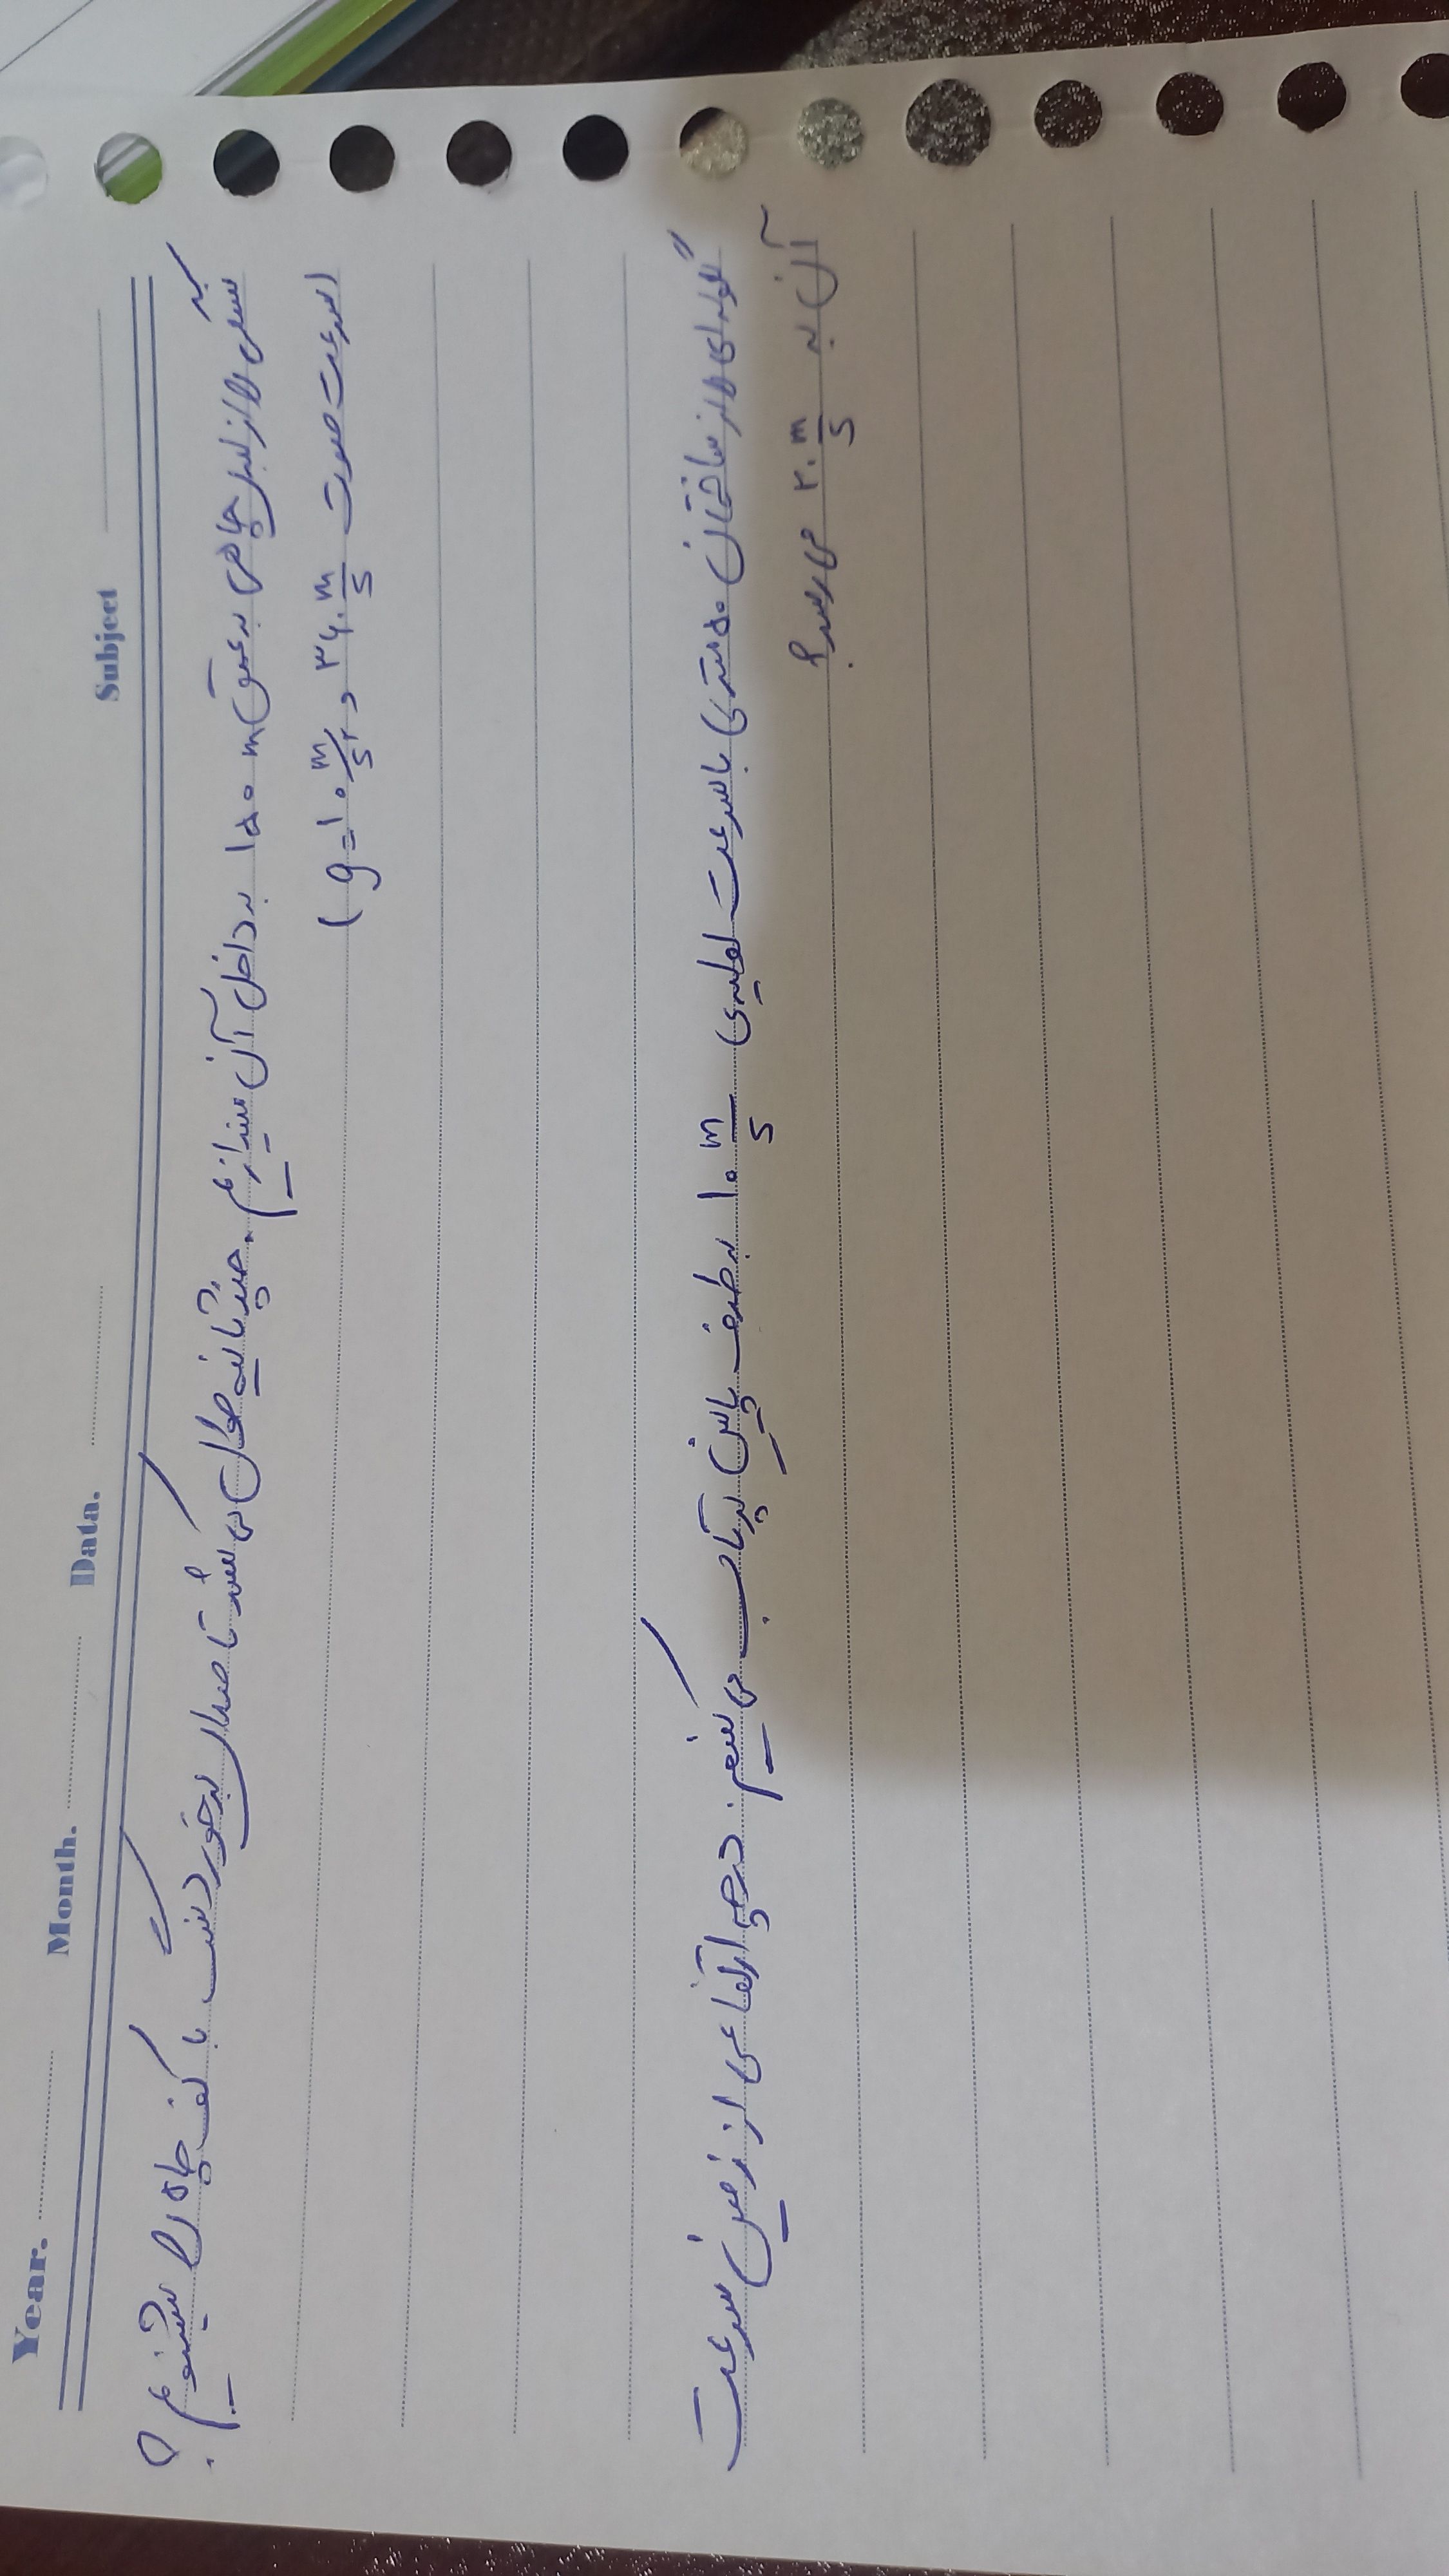 Year. Month. Data. Subject
سنگی را از لبه چاهی به عمق ۱۵۰ m به داخل آن میندازیم. چند ثانیه طول می کشد تا صدای برخورد سنگ با کف چاه را بشنویم؟
(سرعت صوت ۳۴۰ m/s و g=۱۰ m/s۲)
گلوله ای را از ساختمان ۵۰ متری با سرعت اولیه ی ۱۰ m/s به طرف پایین پرتاب می کنیم. در چه ارتفاعی از زمین سرعت
آن به ۲۰ m/s می رسد؟